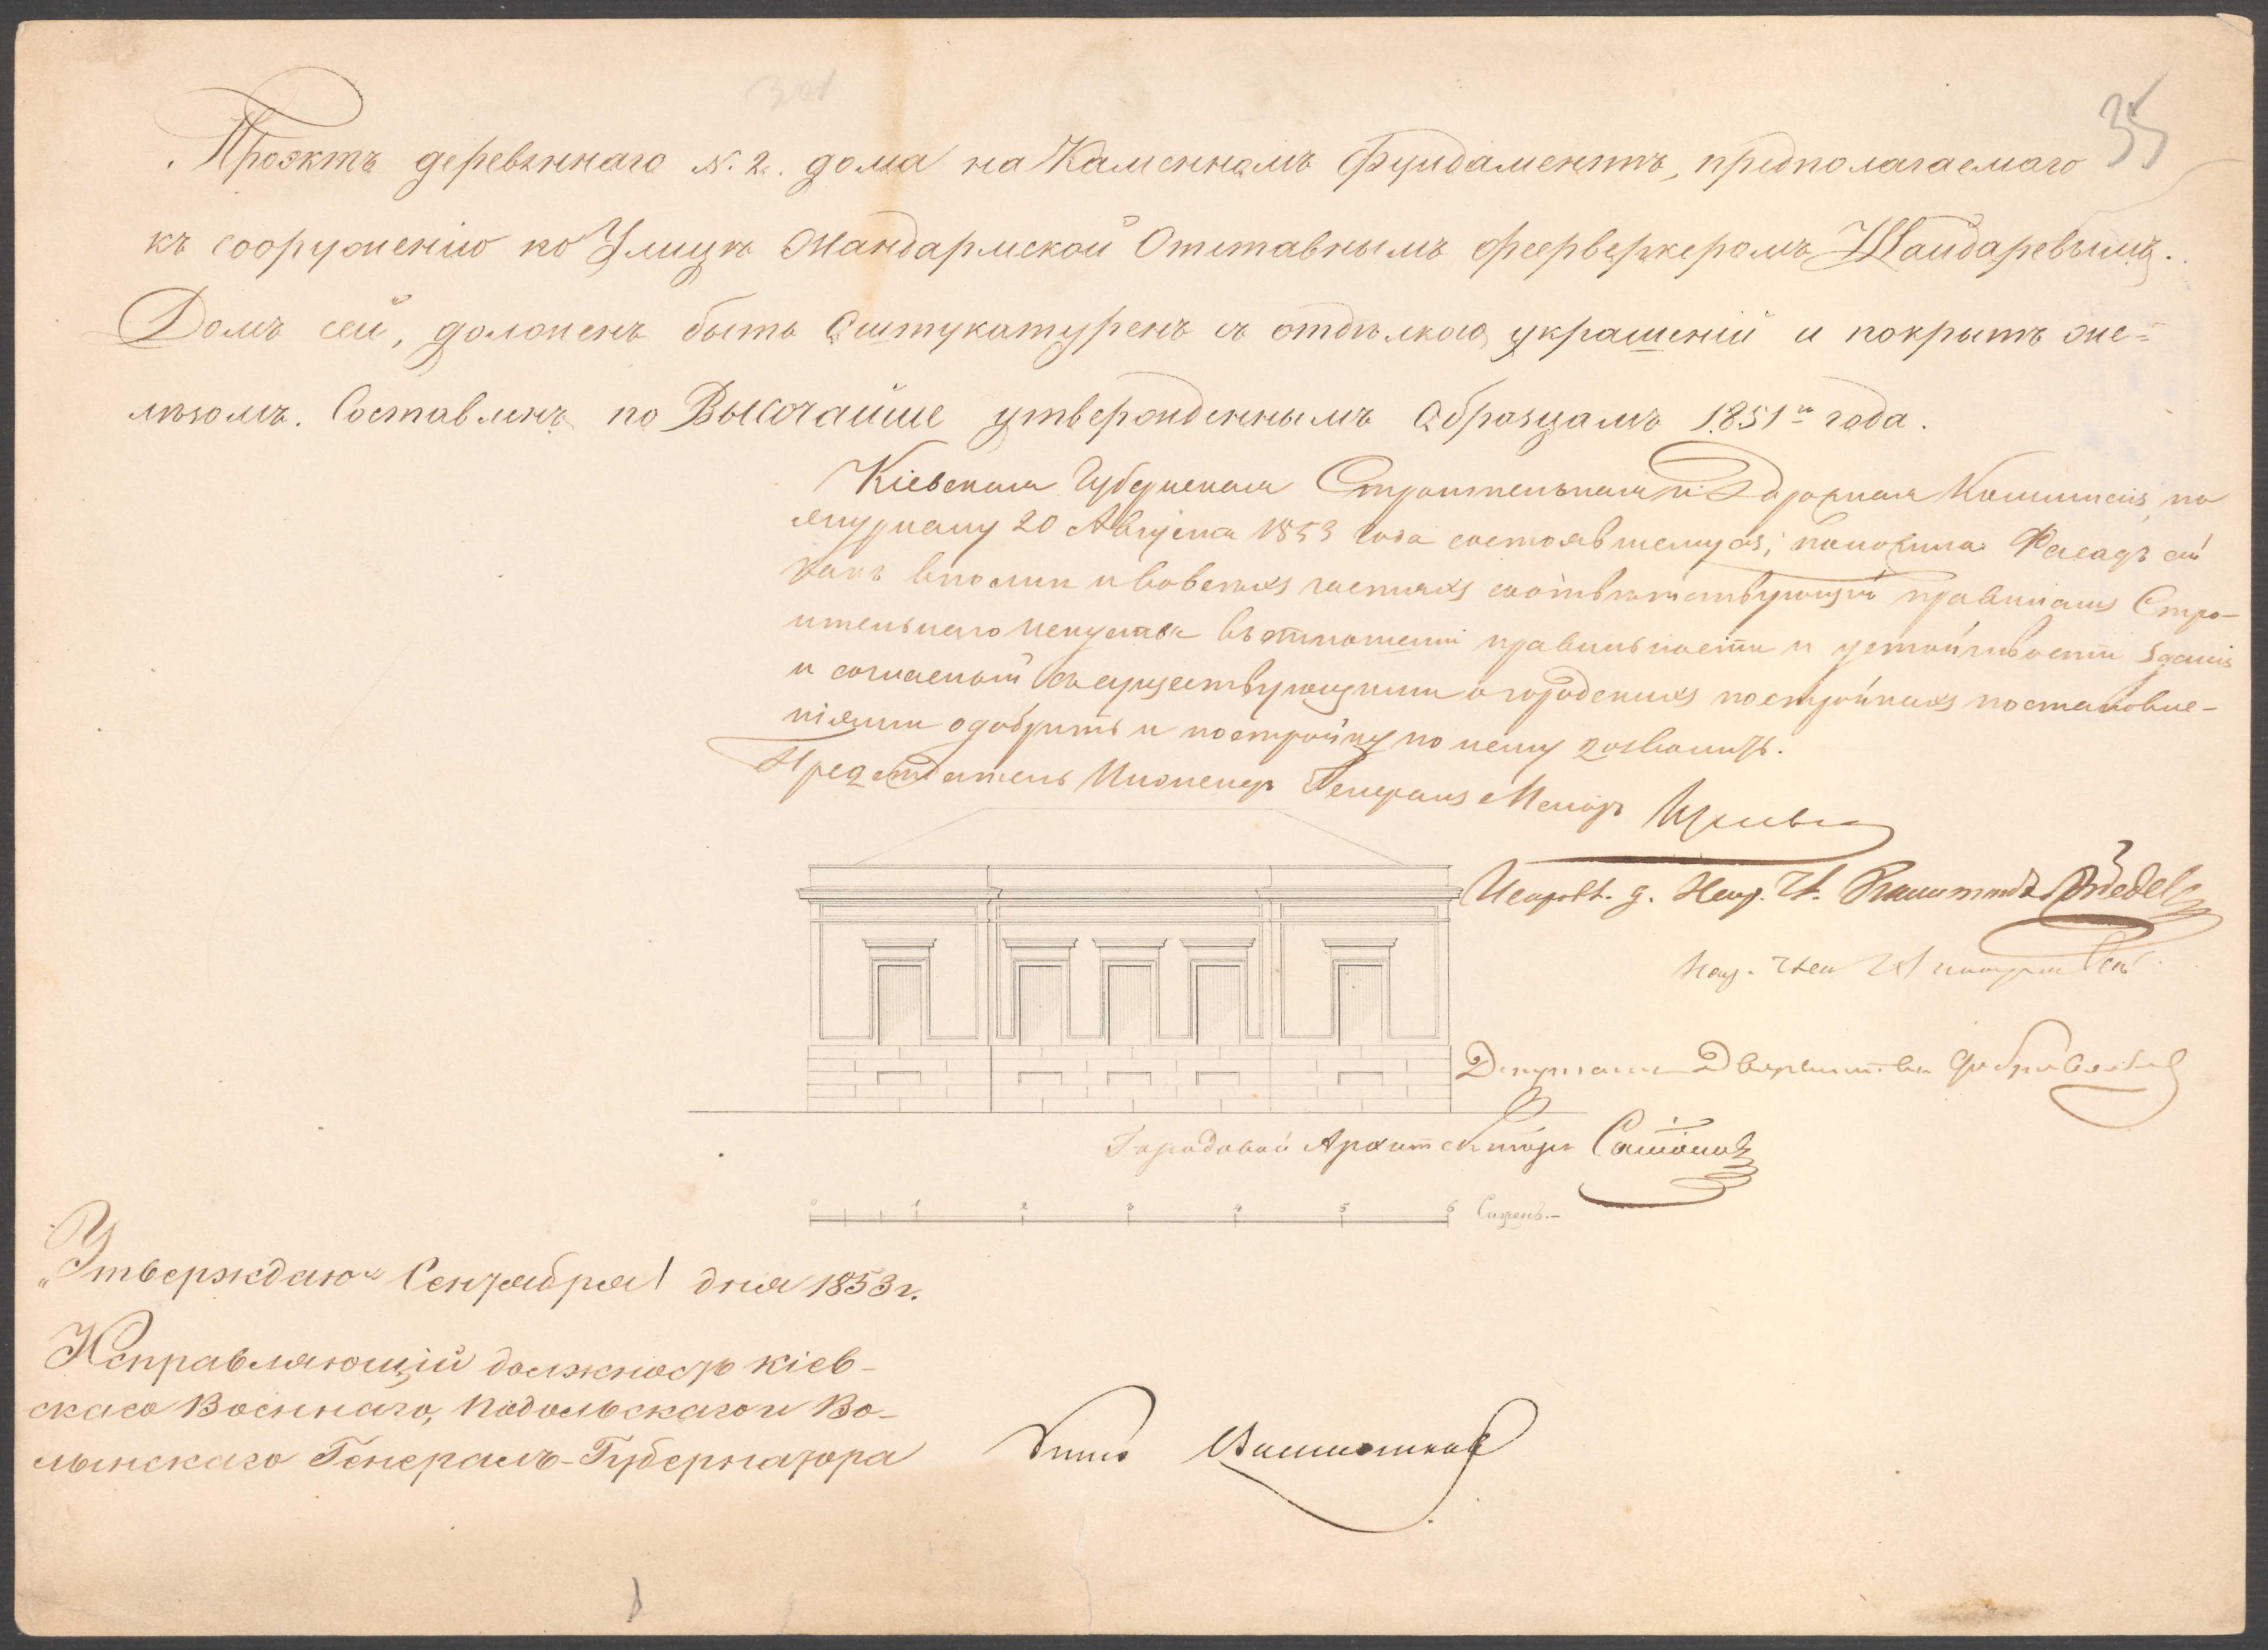 35
Проэктъ деревяннаго N. 2. дома на Каменномъ Фундаментѣ, предполагаемаго
къ сооруженію по Улицѣ Жандармской Отставнымъ феерверкеромъ Шайдаревымъ.
Домъ сей, долженъ быть Оштукатуренъ съ отдѣлкою украшеній и покрытъ же=
лѣзомъ. Составленъ по Высочайше утвержденнымъ Образцамъ 1851го года.
Кіевская Губернская Строительная и Дорожная Коммисія, по
журналу 20 Августа 1853 года состоявшемуся, положила: Фасадъ сей
какъ вполнѣ и во всѣхъ частяхъ соотвѣтствующій правиламъ Стро-
ительнаго Искуства въ отношеніи правильности и устойчивости зданія
и согласный съ существующими о городскихъ постройкахъ постановле-
ніями одобрить и постройку по нему дозволить.
Предсѣдатель Инженеръ Генералъ Маіоръ
Исправл. д. Искус. Ч.
Иск. Член
Депутатъ Дворянства
Городовой Архитекторъ
0 1 2 3 4 5 6 Сажень.
„Утверждаю“ Сентября 1 дня 1853 г.
Исправляющій должность Кіев-
скаго Военнаго, Подольскаго и Во-
лынскаго Генералъ-Губернатора